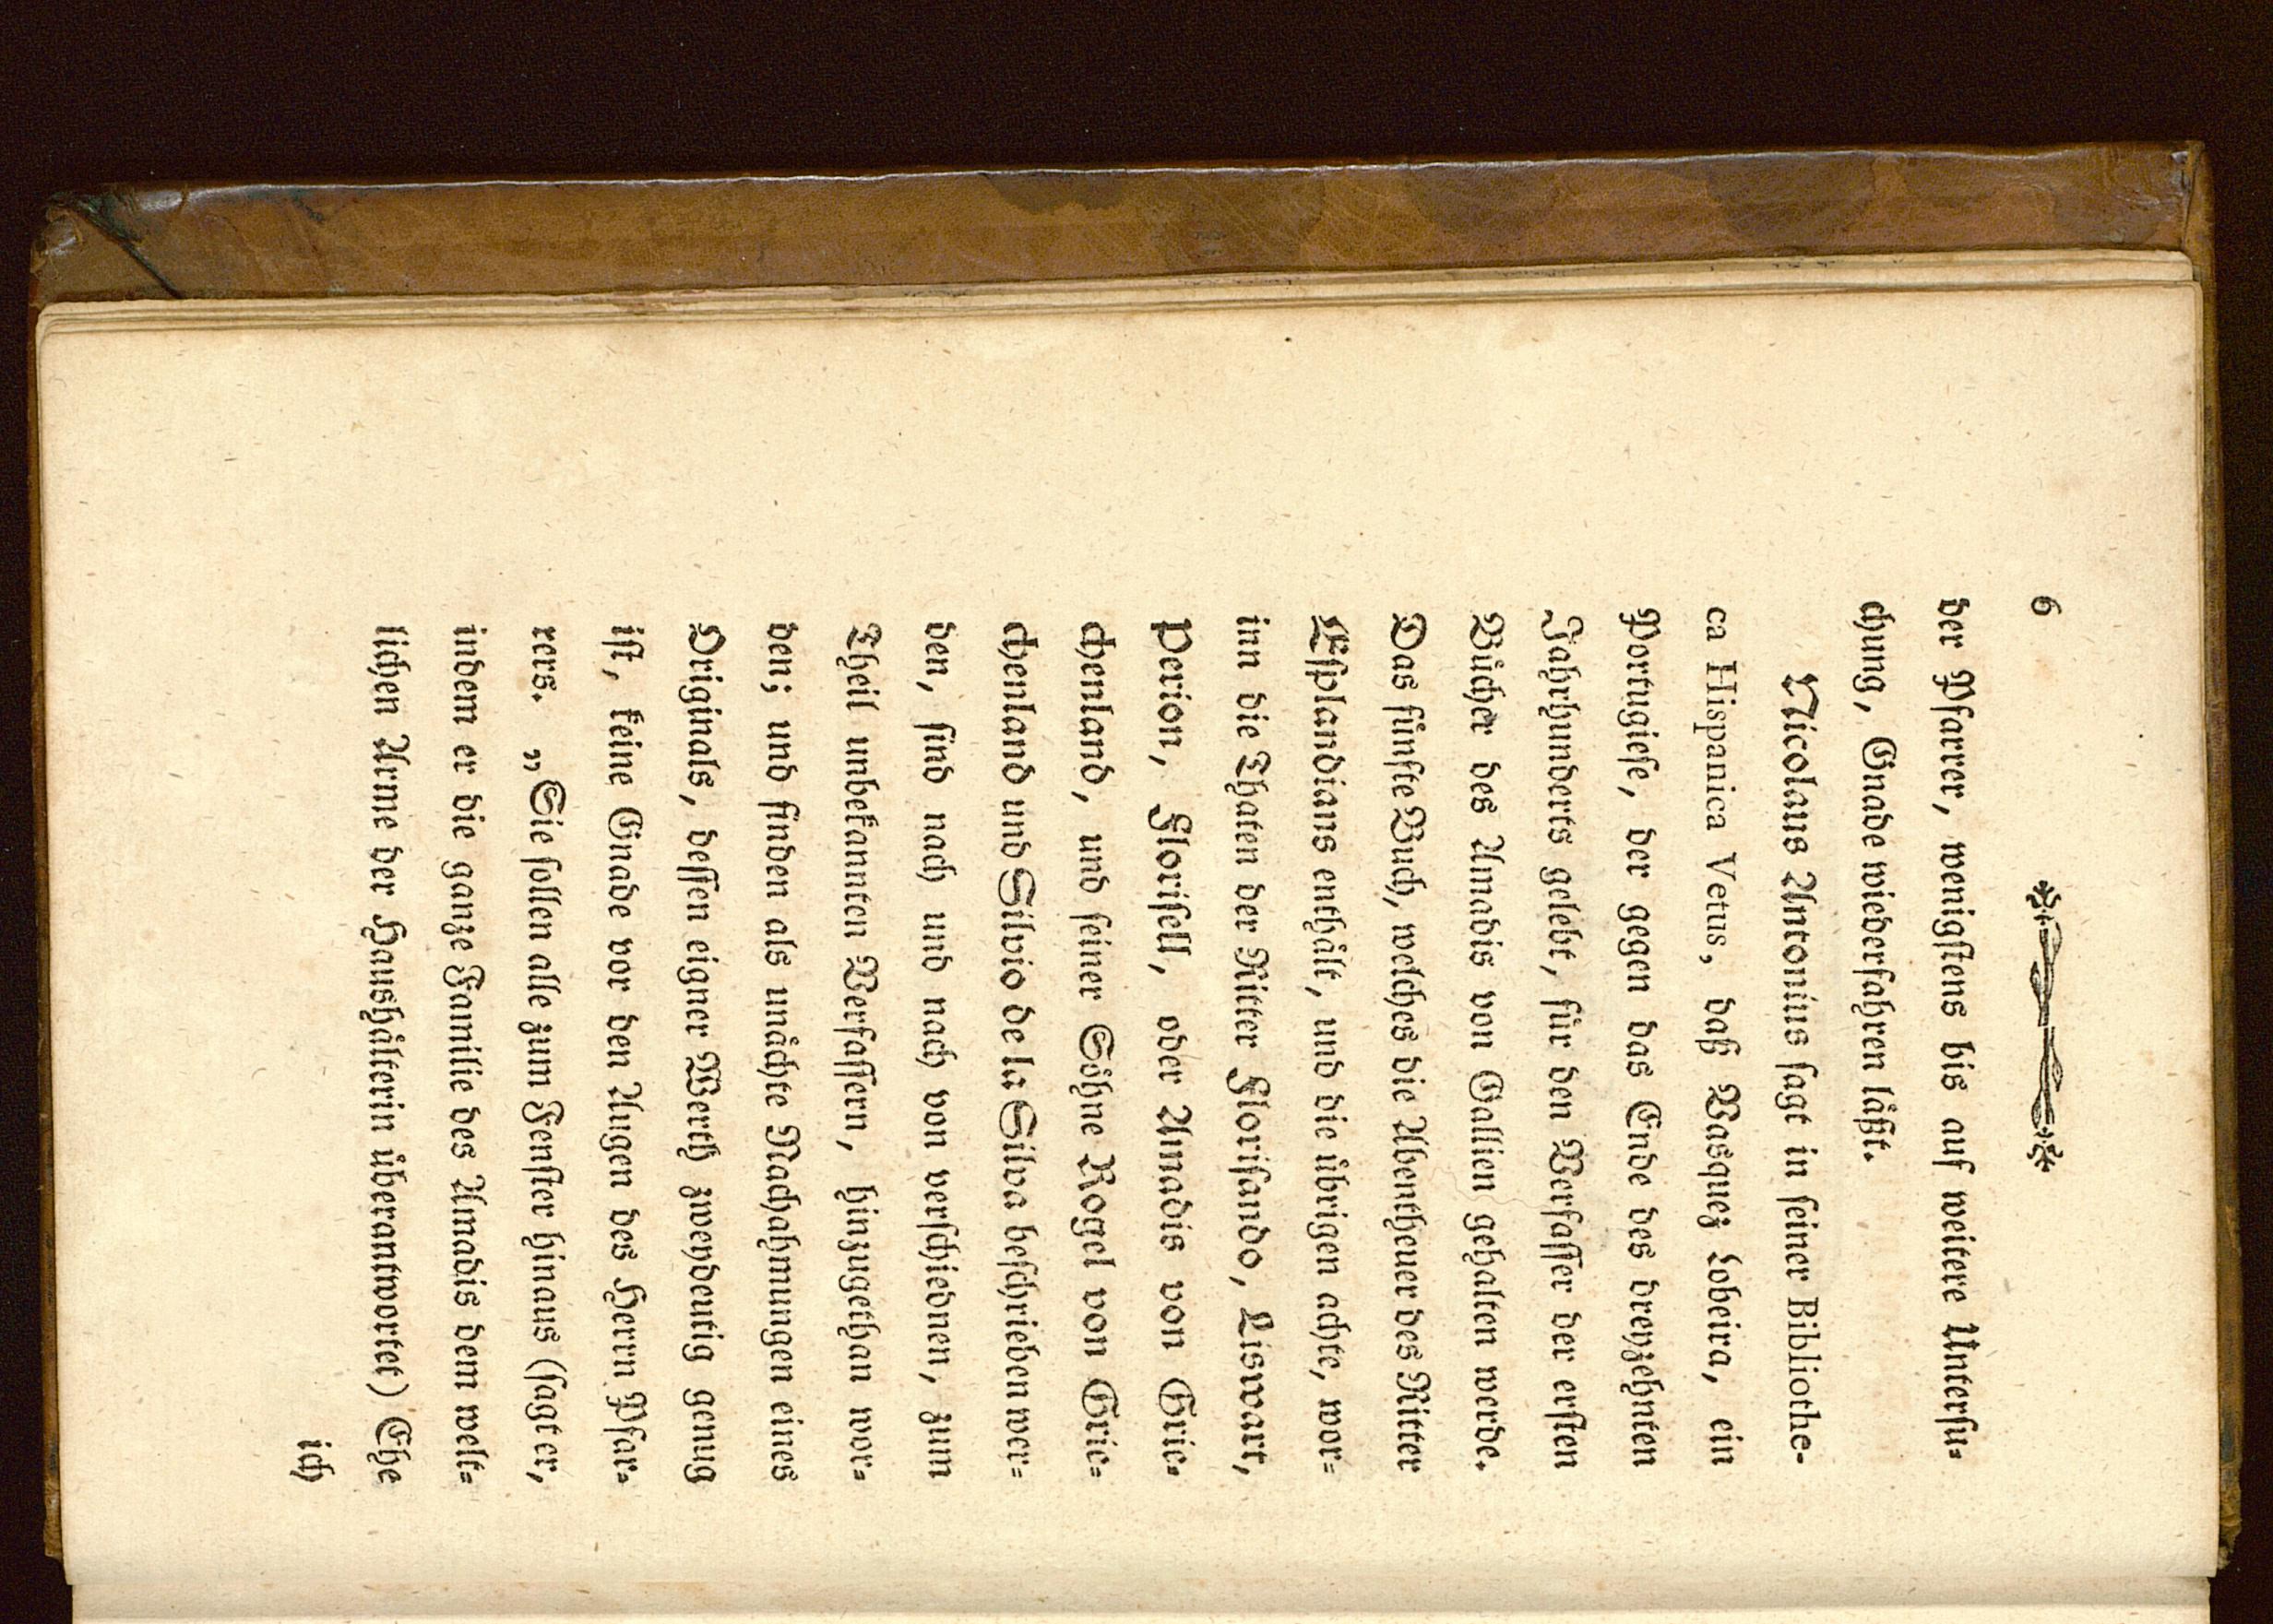 6
der Pfarrer, wenigstens bis auf weitere Untersu-
chung, Gnade wiederfahren läßt.
Nicolaus Antonius sagt in seiner Bibliothe-
ca Hispanica Vetus, daß Vasquez Lobeira, ein
Portugiese, der gegen das Ende des dreyzehnten
Jahrhunderts gelebt, für den Verfasser der ersten
Bücher des Amadis von Gallien gehalten werde.
Das fünfte Buch, welches die Abentheuer des Ritter
Esplandians enthält, und die übrigen achte, wor-
inn die Thaten der Ritter Florisando, Liswart,
Perion, Florisell, oder Amadis von Grie-
chenland, und seiner Söhne Rogel von Grie-
chenland und Silvio de la Silva beschrieben wer-
den, sind nach und nach von verschiednen, zum
Theil unbekannten Verfassern, hinzugethan wor-
den; und finden als unächte Nachahmungen eines
Originals, dessen eigner Werth zweydeutig genug
ist, keine Gnade vor den Augen des Herrn Pfar-
rers. „Sie sollen alle zum Fenster hinaus (sagt er,
indem er die ganze Familie des Amadis dem welt-
lichen Arme der Haushälterin überantwortet) Ehe
ich